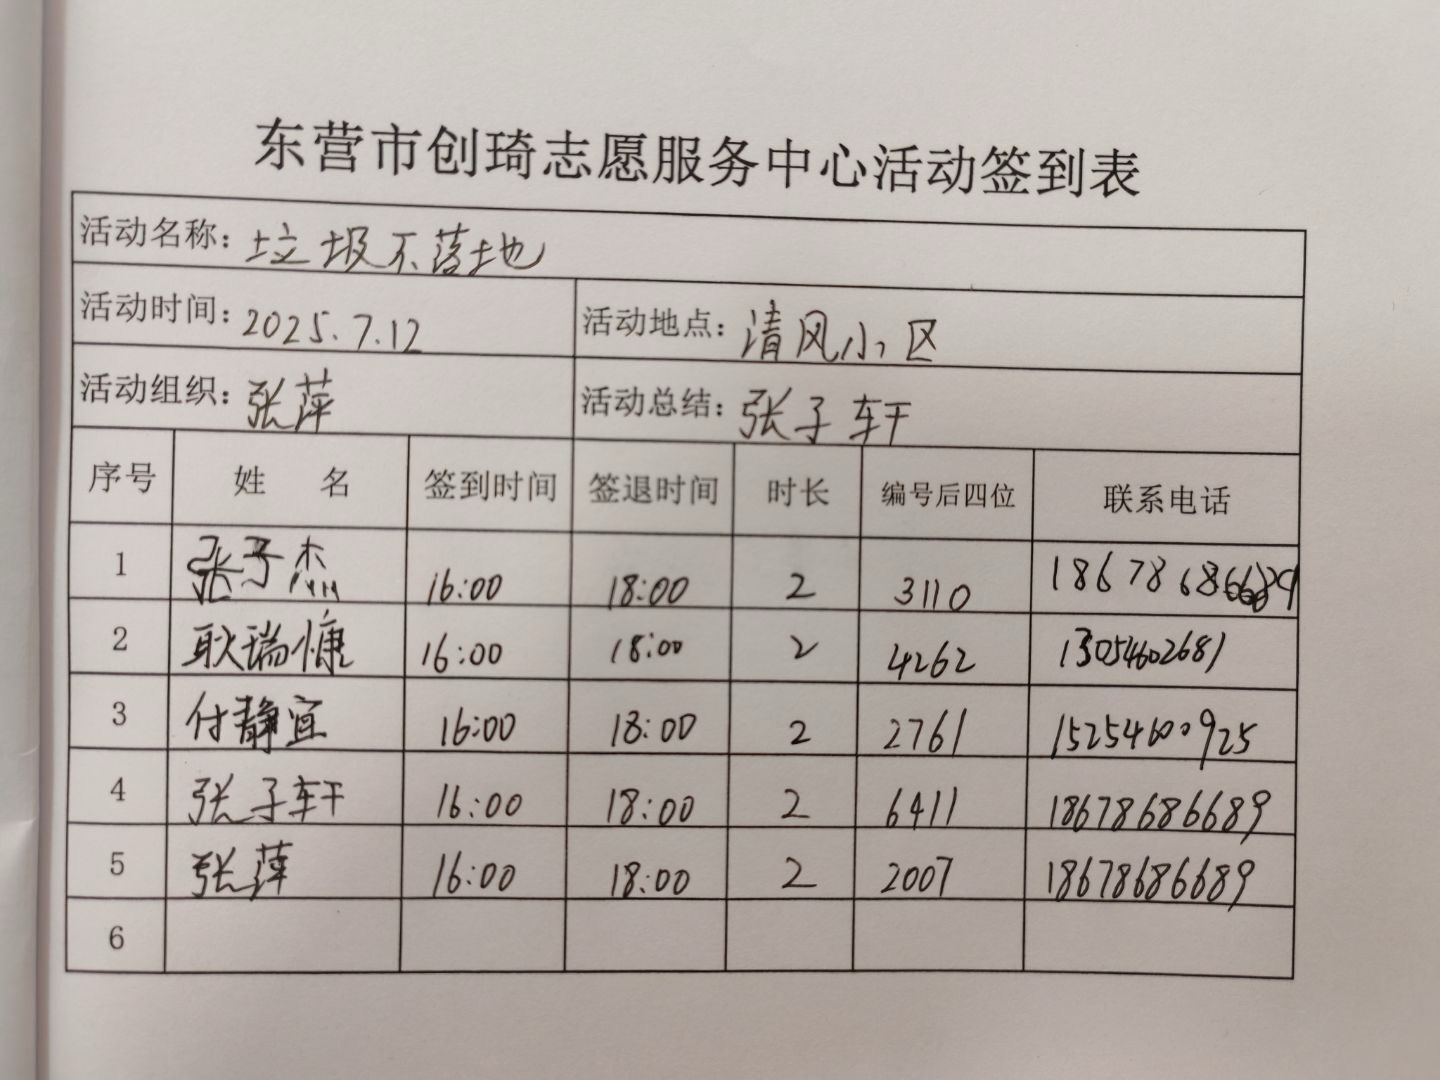 东营市创琦志愿服务中心活动签到表
活动名称：垃圾不落地
活动时间：2025.7.12 活动地点：清风小区
活动组织：张萍 活动总结：张子轩
序号 姓名 签到时间 签退时间 时长 编号后四位 联系电话
1 张子杰 16:00 18:00 2 3110
2 耿瑞慷 16:00 18:00 2 4262 13054602681
3 付静宜 16:00 18:00 2 2761 15254600925
4 张子轩 16:00 18:00 2 6411 18678686689
5 张萍 16:00 18:00 2 2007 18678686689
6